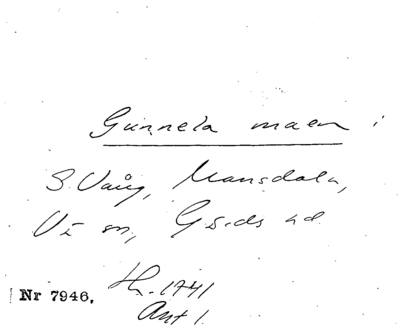 Gunnela maen i
S. Vång, Mansdala,
Vi sn, Gs.ds hd
Nr 7946. Hr. 1741
Ant 1.